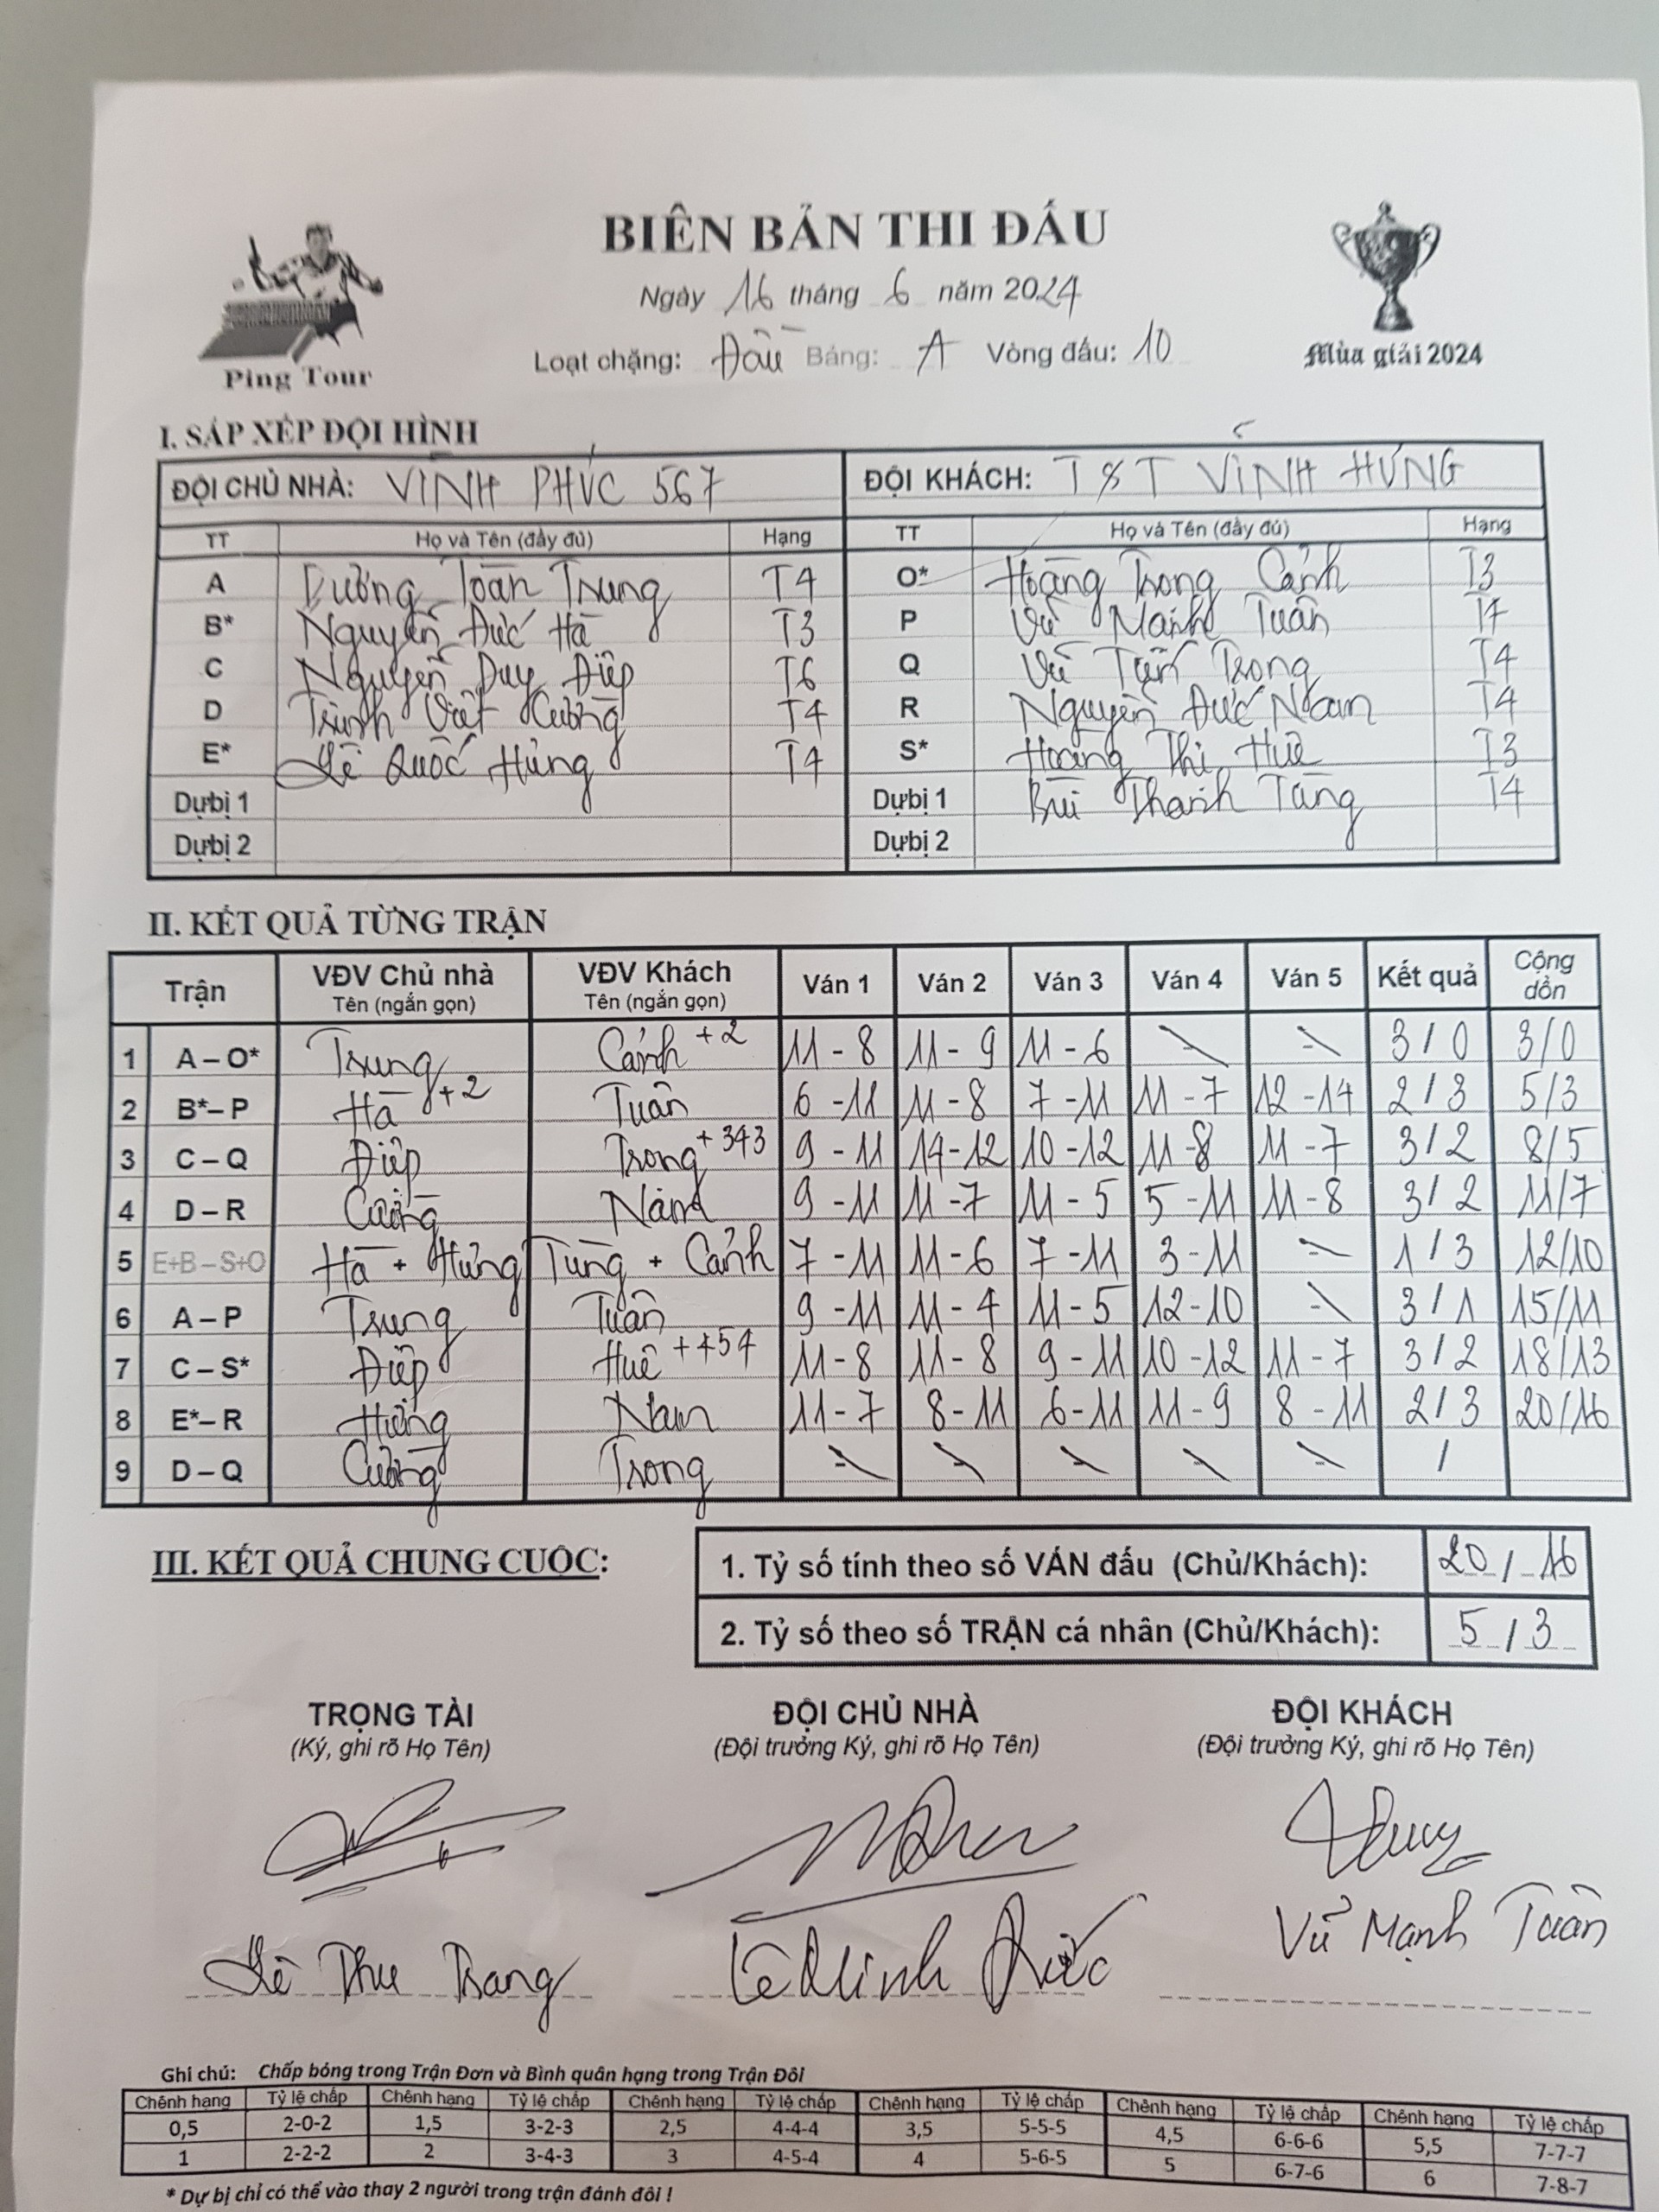 BIÊN BẢN THI ĐẤU
Ngày 16 tháng 6 năm 2024
Loạt chặng: Đầu Bảng: A Vòng đấu: 10
Ping Tour
Mùa giải 2024
I. SẮP XẾP ĐỘI HÌNH
ĐỘI CHỦ NHÀ: VĨNH PHÚC 567 ĐỘI KHÁCH: T&T VĨNH HƯNG
TT Họ và Tên (đầy đủ) Hạng TT Họ và Tên (đầy đủ) Hạng
A Dương Toàn Trung T4 O* Hoàng Trọng Cảnh T3
B* Nguyễn Đức Hà T3 P Vũ Mạnh Tuấn T4
C Nguyễn Duy Điệp T6 Q Vũ Tiến Trọng T4
D Trịnh Việt Cường T4 R Nguyễn Đức Nam T4
E* Lê Quốc Hưng T4 S* Hoàng Thị Huê T3
Dự bị 1 Dự bị 1 Bùi Thanh Tùng T4
Dự bị 2 Dự bị 2
II. KẾT QUẢ TỪNG TRẬN
Trận VĐV Chủ nhà Tên (ngắn gọn) VĐV Khách Tên (ngắn gọn) Ván 1 Ván 2 Ván 3 Ván 4 Ván 5 Kết quả Cộng dồn
1 A – O* Trung Cảnh +2 11 - 8 11 - 9 11 - 6 - - 3 / 0 3/0
2 B*– P Hà +2 Tuấn 6 - 11 11 - 8 7 - 11 11 - 7 12 - 14 2 / 3 5/3
3 C – Q Điệp Trọng +343 9 - 11 14 - 12 10 - 12 11 - 8 11 - 7 3 / 2 8/5
4 D – R Cường Nam 9 - 11 11 - 7 11 - 5 5 - 11 11 - 8 3 / 2 11/7
5 E+B – S+O Hà + Hưng Tùng + Cảnh 7 - 11 11 - 6 7 - 11 3 - 11 - 1 / 3 12/10
6 A – P Trung Tuấn 9 - 11 11 - 4 11 - 5 12 - 10 - 3 / 1 15/11
7 C – S* Điệp Huê ++454 11 - 8 11 - 8 9 - 11 10 - 12 11 - 7 3 / 2 18/13
8 E*– R Hưng Nam 11 - 7 8 - 11 6 - 11 11 - 9 8 - 11 2 / 3 20/16
9 D – Q Cường Trọng - - - - - /
III. KẾT QUẢ CHUNG CUỘC:
1. Tỷ số tính theo số VÁN đấu (Chủ/Khách): 20 / 16
2. Tỷ số theo số TRẬN cá nhân (Chủ/Khách): 5 / 3
TRỌNG TÀI ĐỘI CHỦ NHÀ ĐỘI KHÁCH
(Ký, ghi rõ Họ Tên) (Đội trưởng Ký, ghi rõ Họ Tên) (Đội trưởng Ký, ghi rõ Họ Tên)
Lê Thu Trang Lê Minh Đức Vũ Mạnh Tuấn
Ghi chú: Chấp bóng trong Trận Đơn và Bình quân hạng trong Trận Đôi
Chênh hạng Tỷ lệ chấp Chênh hạng Tỷ lệ chấp Chênh hạng Tỷ lệ chấp Chênh hạng Tỷ lệ chấp Chênh hạng Tỷ lệ chấp Chênh hạng Tỷ lệ chấp
0,5 2-0-2 1,5 3-2-3 2,5 4-4-4 3,5 5-5-5 4,5 6-6-6 5,5 7-7-7
1 2-2-2 2 3-4-3 3 4-5-4 4 5-6-5 5 6-7-6 6 7-8-7
* Dự bị chỉ có thể vào thay 2 người trong trận đánh đôi !